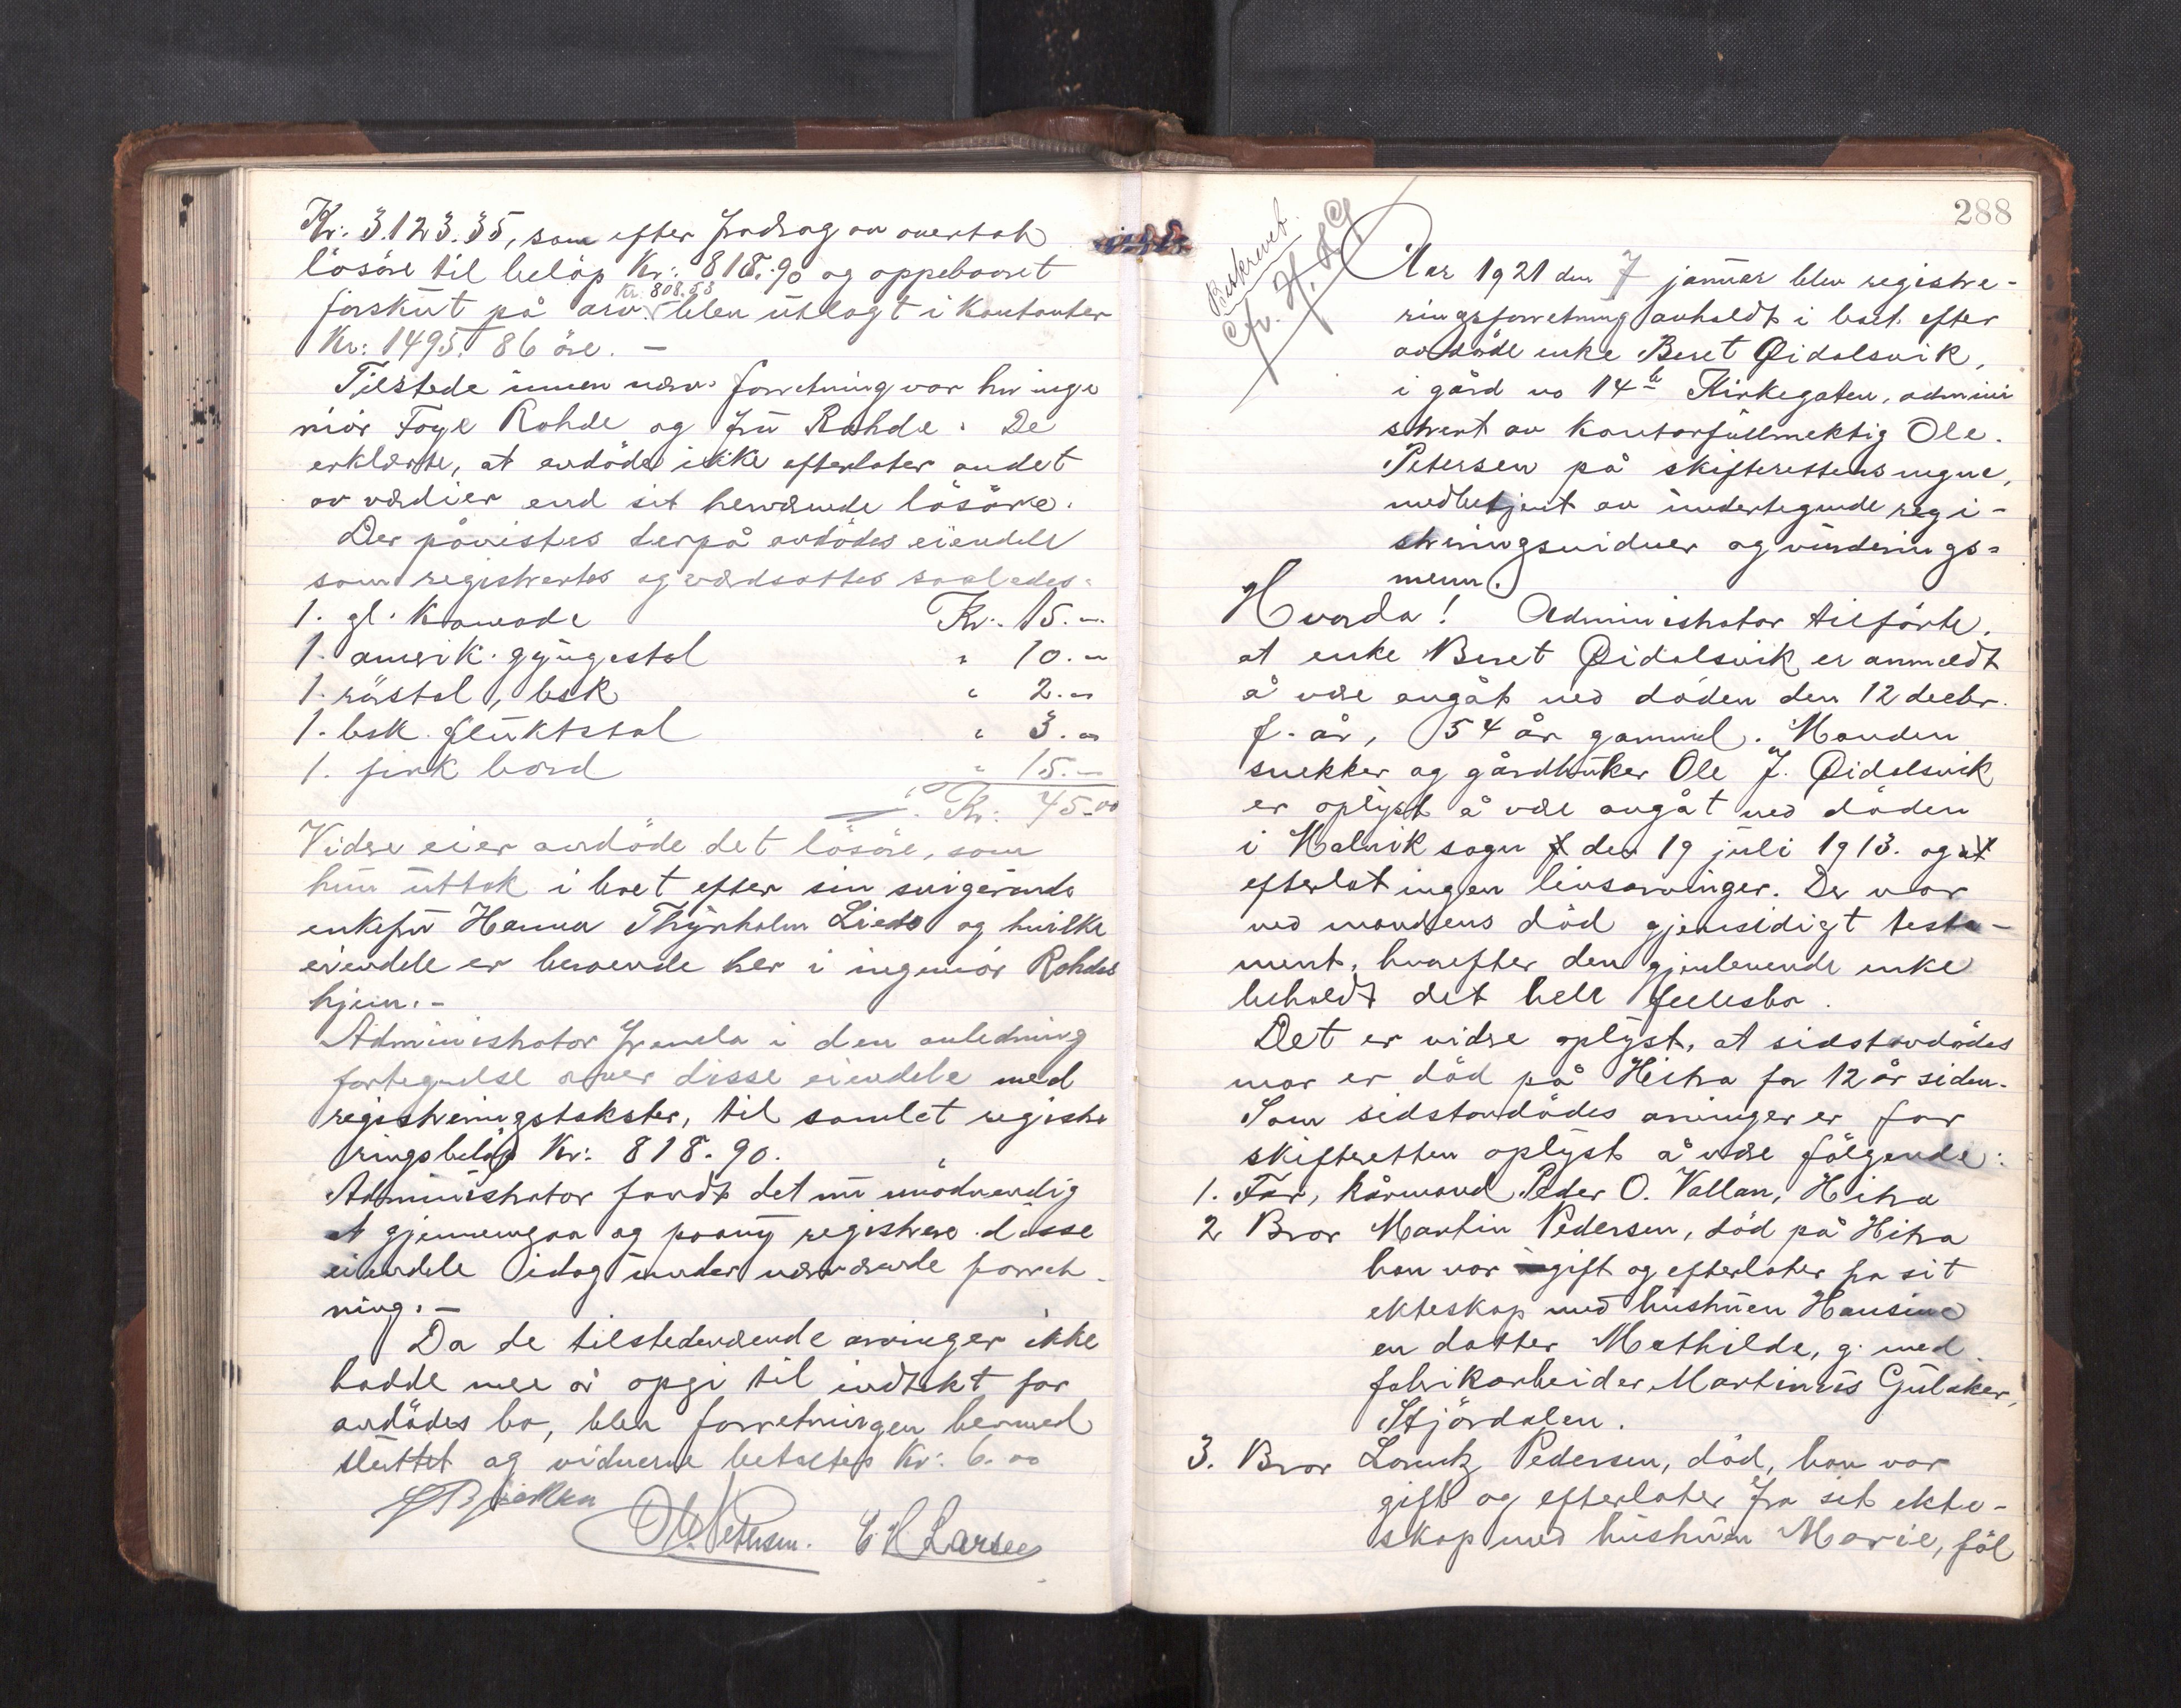 Kr. 3.123.35, som efter fradrag av overtat
lösöre til beløp Kr: 818.90 og oppebaaret
Kr. 808.53
forskut på arv blev utlagt i kontanter
Kr: 1495. 86 öre. —
Tilstede unner nærv. forretning var hr inge
niör Foye Rohde og fru Rohde. De
erklærte, at avdöde ikke efterlater andet
av værdier end sit herværende lösöre.
Der påvistes derpå avdödes eiendele
som registrertes og værdsattes saaledes:
1. gl. Komode Kr: 15.—
1. amerik. gyngestol " 10.—
1. röstol, bsk " 2.—
1. bsk. fluktstol " 3.—
1. firk bord " 15.—
Kr: 45.00
Videre eier avdöde det lösöre, som
hun uttok i boet efter sin svigerinde
enkefru Hanna Thynholm Liedo og hvilke
eiendele er beroende her i ingeniör Rohdes
hjem. —
Administrator fremla i den anledning
fortegnelse over disse eiendele med
registreringstakster, til samlet registre
ringsbelöp Kr: 818.90.
Administrator fandt det nu unödvendig
at gjennemgaa og paany registrere disse
eiendele idag under nærværende forret-
ning. —
Da de tilstedeværende arvinger ikke
hadde mer å opgi til indtekt for
avdödes bo, blev forretningen hermed
sluttet og vidnerne betaltes Kr: 6.00
Ole Petersen. C H Larsen
288
Beskrevet.
Aar 1921 den 7 januar blev registre-
ringsforretning avholdt i boet efter
avdöde enke Beret Øidalsvik,
i gård no 14 b Kirkegaten, admini
strert av kontorfullmektig Ole
Petersen på skifterettens vegne,
medbetjent av undertegnede regi-
streringsvidner og vurderings-
menn.
Hvorda! Administrator tilförte,
at enke Beret Øidalsvik er anmeldt
å være avgåt ved döden den 12 decbr.
f. år, 54 år gammel. Manden
snekker og gårdbruker Ole J. Øidalsvik
er oplyst å være avgåt ved döden
i Malvik sogn den 19 juli 1913. og
efterlot ingen livsarvinger. Der var
ved mandens död gjensidigt testa-
ment, hvorefter den gjenlevende enke
beholdt det hele fellesbo.
Det er videre oplyst, at sidstavdödes
mor er död på Hitra for 12 år siden.
Som sidstavdödes arvinger er for
skifteretten oplyst å være fölgende:
1. Far, kårmand Peder O. Vollan, Hitra
2 Bror Martin Pedersen, död på Hitra
han var gift og efterlater fra sit
ekteskap med hustruen Hansine
en datter Mathilde, g. med
fabrikarbeider Martinus Gulaker,
Stjördalen.
3. Bror Lorentz Pedersen, död, han var
gift og efterlater fra sit ekte-
skap med hustruen Marie, föl